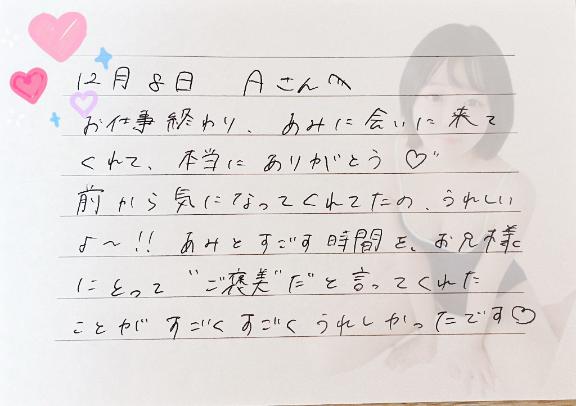 12月8日 Aさんへ
お仕事終わり、あみに会いに来て
くれて、本当にありがとう♡
前から気になってくれてたの、うれしい
よ〜!! あみとすごす時間を、お兄様に
にとって"ご褒美"だ"と言ってくれた
ことがすごくすごくうれしかったです♡